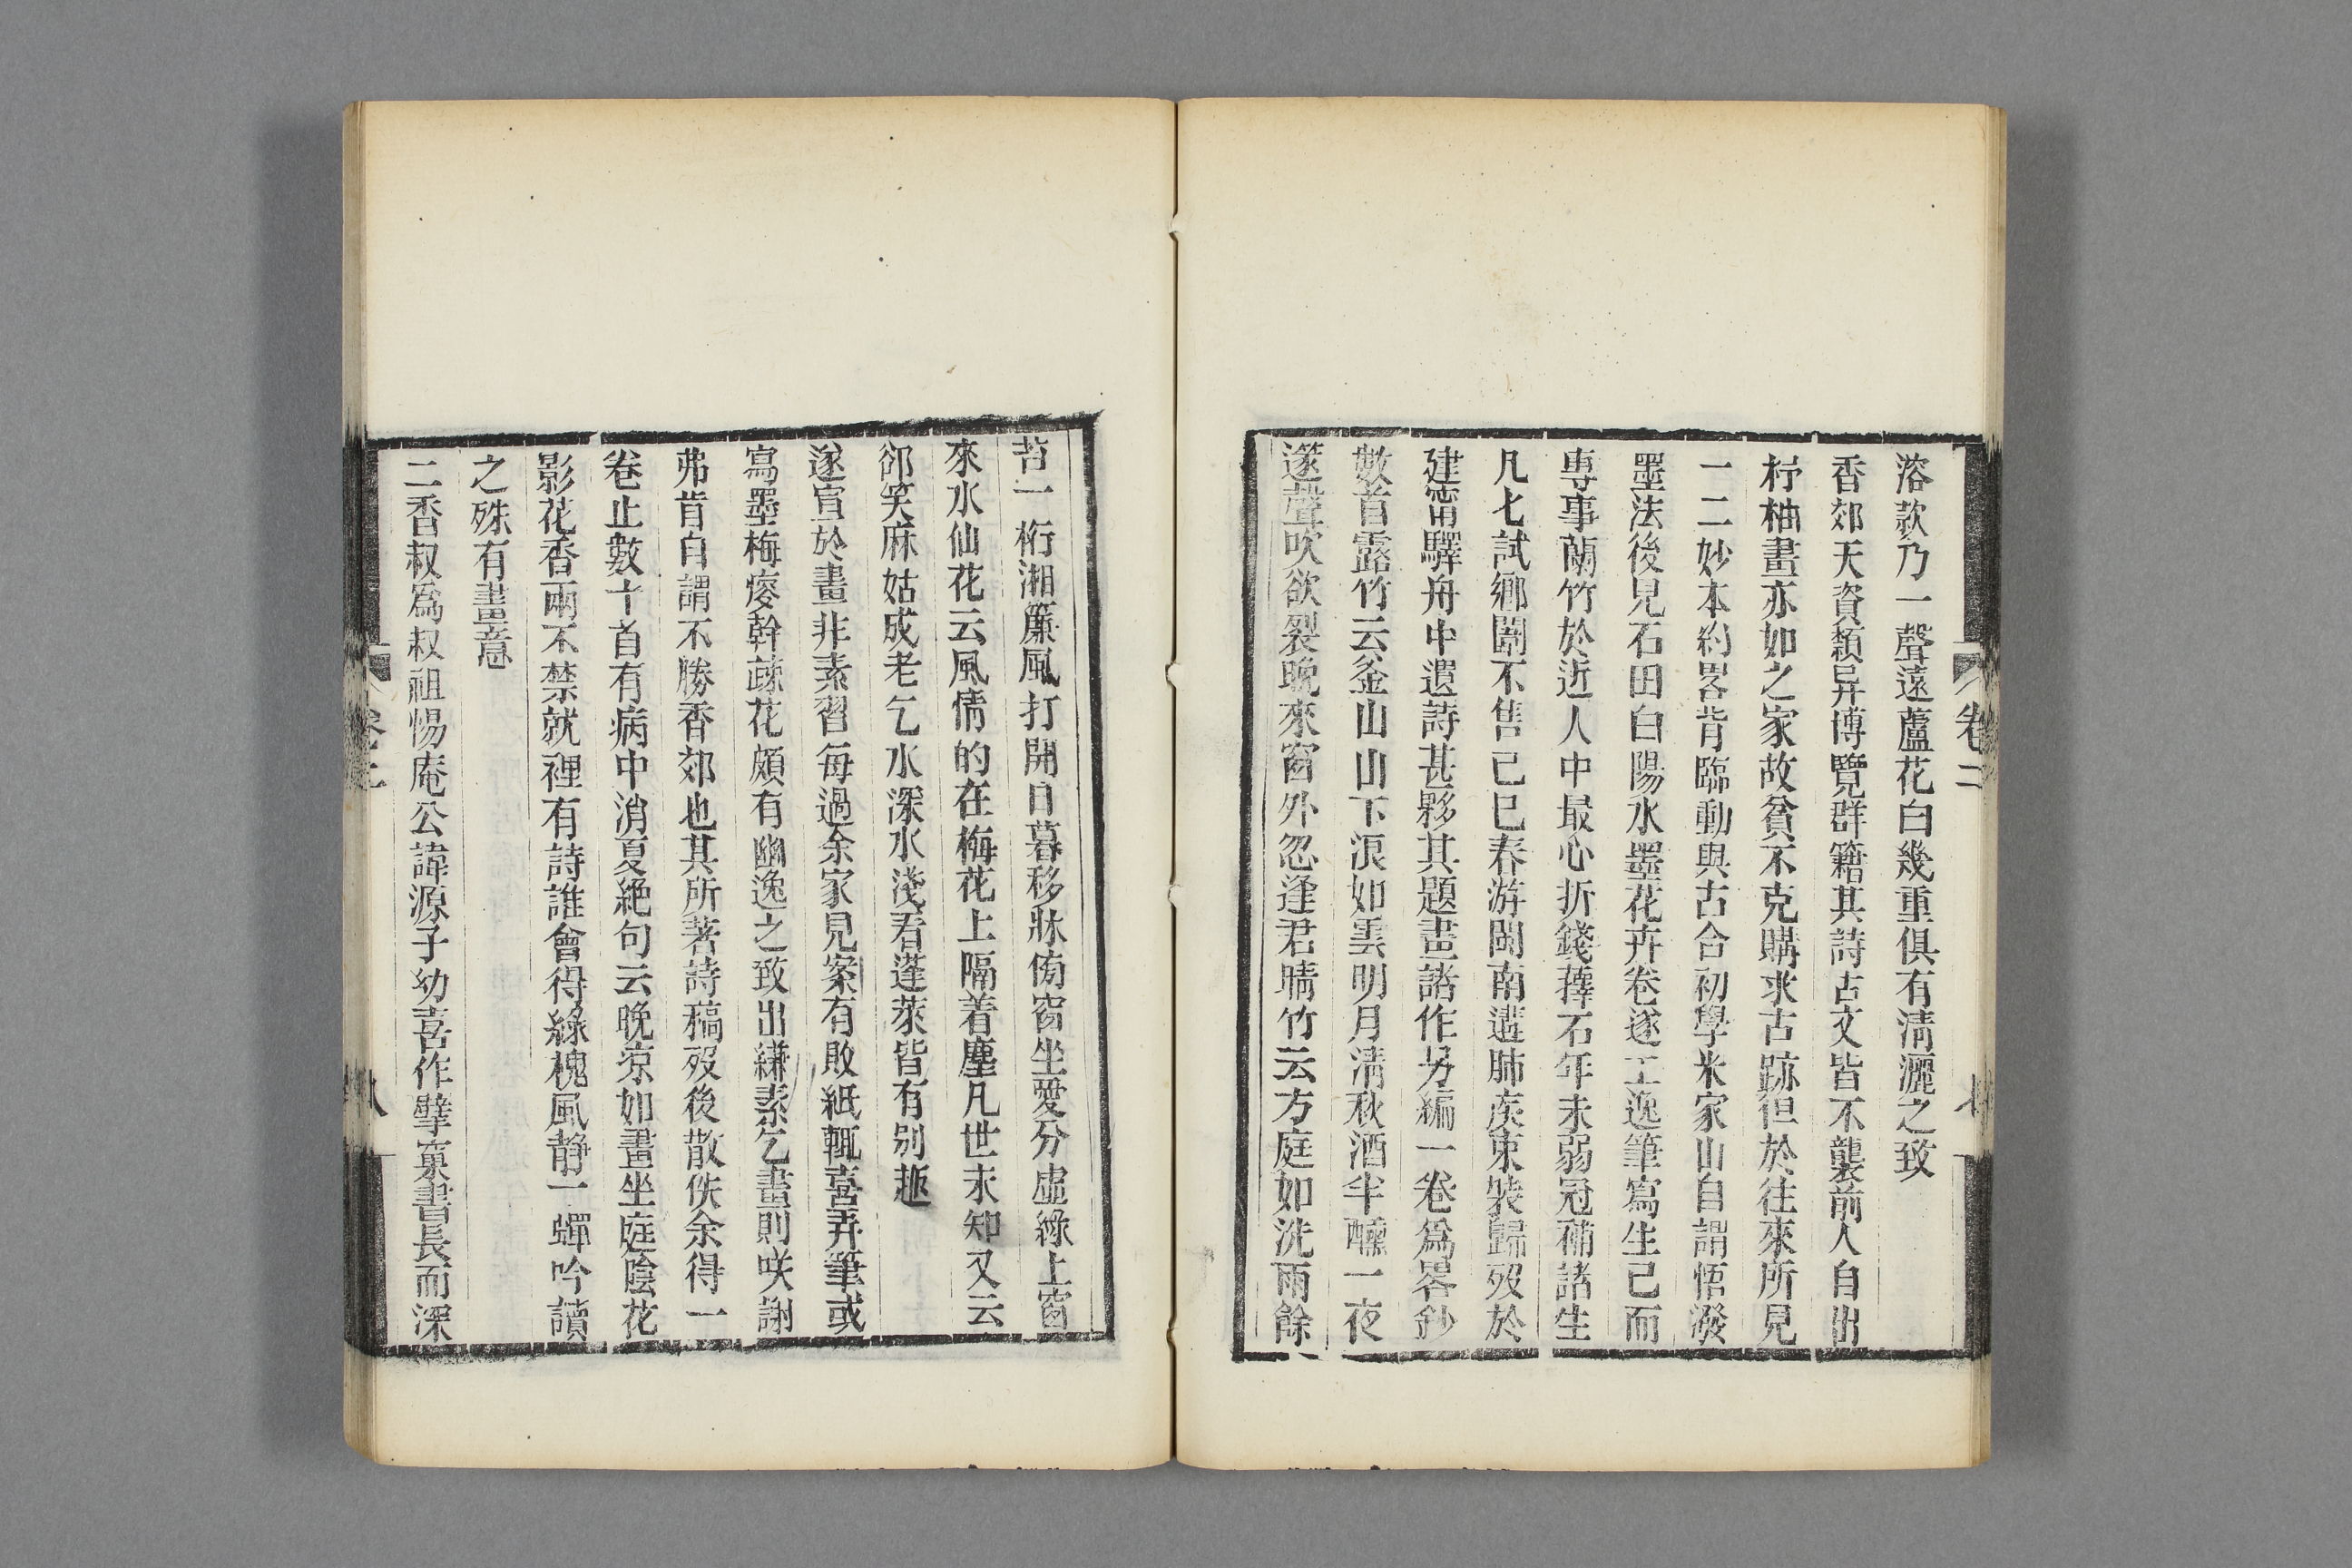 落款乃一聲遠蘆花白幾重俱有淸灑之致
香郊天資穎异博覽群籍其詩古文皆不襲前人自出
杼柚畫亦如之家故貧不克購求古跡但於往來所見
一二妙本約畧背臨動與古合初學米家山自謂悟潑
墨法後見石田白陽水墨花卉卷遂工逸筆寫生已而
専事蘭竹於近人中最心折錢蘀石年未弱冠補諸生
凡七試鄉闈不售己巳春游閩南遘肺疾束裝歸歿於
建甯驛舟中遺詩甚夥其題畫諸作另編一卷爲畧鈔
數首露竹云釜山山下浪如雲明月淸秋酒半醺一夜
篴聲吹欲裂晚來窗外忽逢君晴竹云方庭如洗雨餘
卷二
七
苔一桁湘簾風打開日暮移牀傍窗坐愛分虛綠上窗
來水仙花云風情的在梅花上隔着塵凡世未知又云
郤笑麻姑成老乞水深水淺看蓬萊皆有别趣
遂宣於畫非素習每過余家見案有敗紙輒喜弄筆或
寫墨梅瘦幹疎花頗有幽逸之致出縑素乞畫則咲謝
弗肯自謂不勝香郊也其所著詩稿歿後散佚余得一
卷止數十首有病中消夏絶句云晚凉如畫坐庭陰花
影花香兩不禁就裡有詩誰會得綠槐風靜一蟬吟讀
之殊有畫意
二香叔爲叔祖惕庵公諱源子幼喜作擘窠書長而深
卷二
八